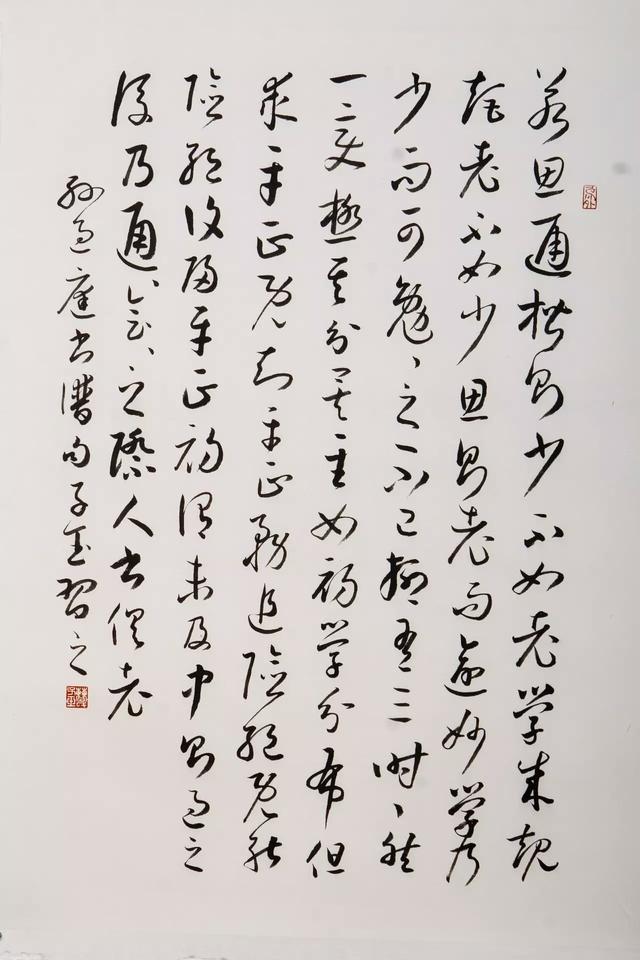 若思通楷則少不如老學成規
矩老不如少思則老而逾妙學乃
少而可勉〻之不已抑有三時〻然
一變極其分矣至如初學分布但
求平正既知平正務追險絕既能
險絕復歸平正初謂未及中則過之
後乃通〻會〻之際人書俱老
孫過庭書譜句子玉習之